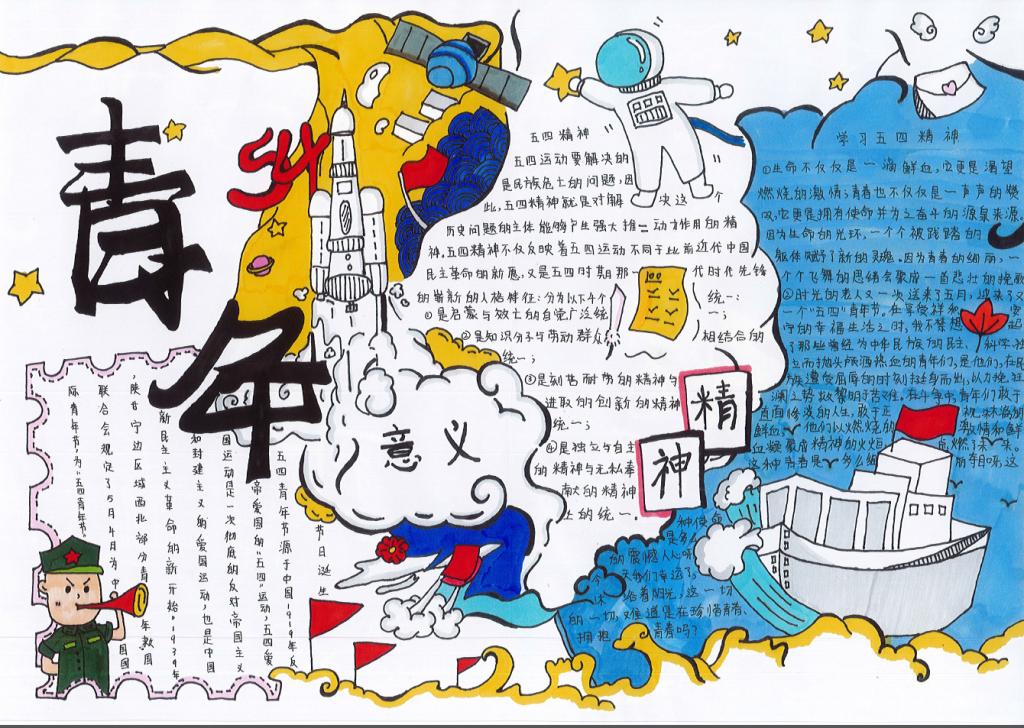 青年
54
五四精神
五四运动要解决的
是民族危亡的问题,因
此,五四精神就是对解决这个
历史问题的主体能够产生强大推动作用的精
神。五四精神不仅反映着五四运动不同于此前近代中国
民主革命的新意,又是五四时期那一代时代先锋
的崭新的人格特征:分为以下4个统一:
①是启蒙与效土的自觉广泛统
②是知识分子与劳动群众相结合的
统一;
③是刻苦耐劳的精神与
进取的创新的精神
统一;
④是独立与自主
的精神与无私奉
献的精神
上的统一。
精
神
意义
学习五四精神
①生命不仅仅是一滴鲜血,它更是渴望
燃烧的激情;青春也不仅仅是一声声的燃
叹,它更是拥有使命并为之奋斗的源泉来源。
因为生命的光环,一个个被践踏的
躯体赋予了新的灵魂。因为青春的细雨,一
个个飞舞的思绪会聚成一首悲壮的挽歌
②时光的老人又一次送来了五月,迎来了又
一个“五四”青年节。在享受祥和、安
宁的幸福生活之时,我不禁想
了那些曾经为中华民族的民主、科学、独
立而抛头颅洒热血的青年们。是他们,在民
族遭受屈辱的时刻挺身而出,以力挽狂
澜之势救黎明于苦难。在斗争中,青年们敢于
直面惨淡的人生,敢于正视淋漓的
鲜血。他们以燃烧的激情和鲜
血凝聚成精神的火炬,点燃了未来。
这种青春是多么
种使命
是多么
的震撼人心呀
个天我们幸运了,
沐浴着阳光,这一切
的一切,难道是在珍惜青春、
拥抱青春吗?
节日诞生
五四青年节源于中国1919年反
帝爱国的“五四”运动,五四爱
国运动是一次彻底的反对帝国主义
和封建主义的爱国运动,也是中国
新民主主义革命的新开始。1939年
,陕甘宁边区域西北部分青年救国
联合会规定了5月4日为中国
际青年节,为“五四青年节